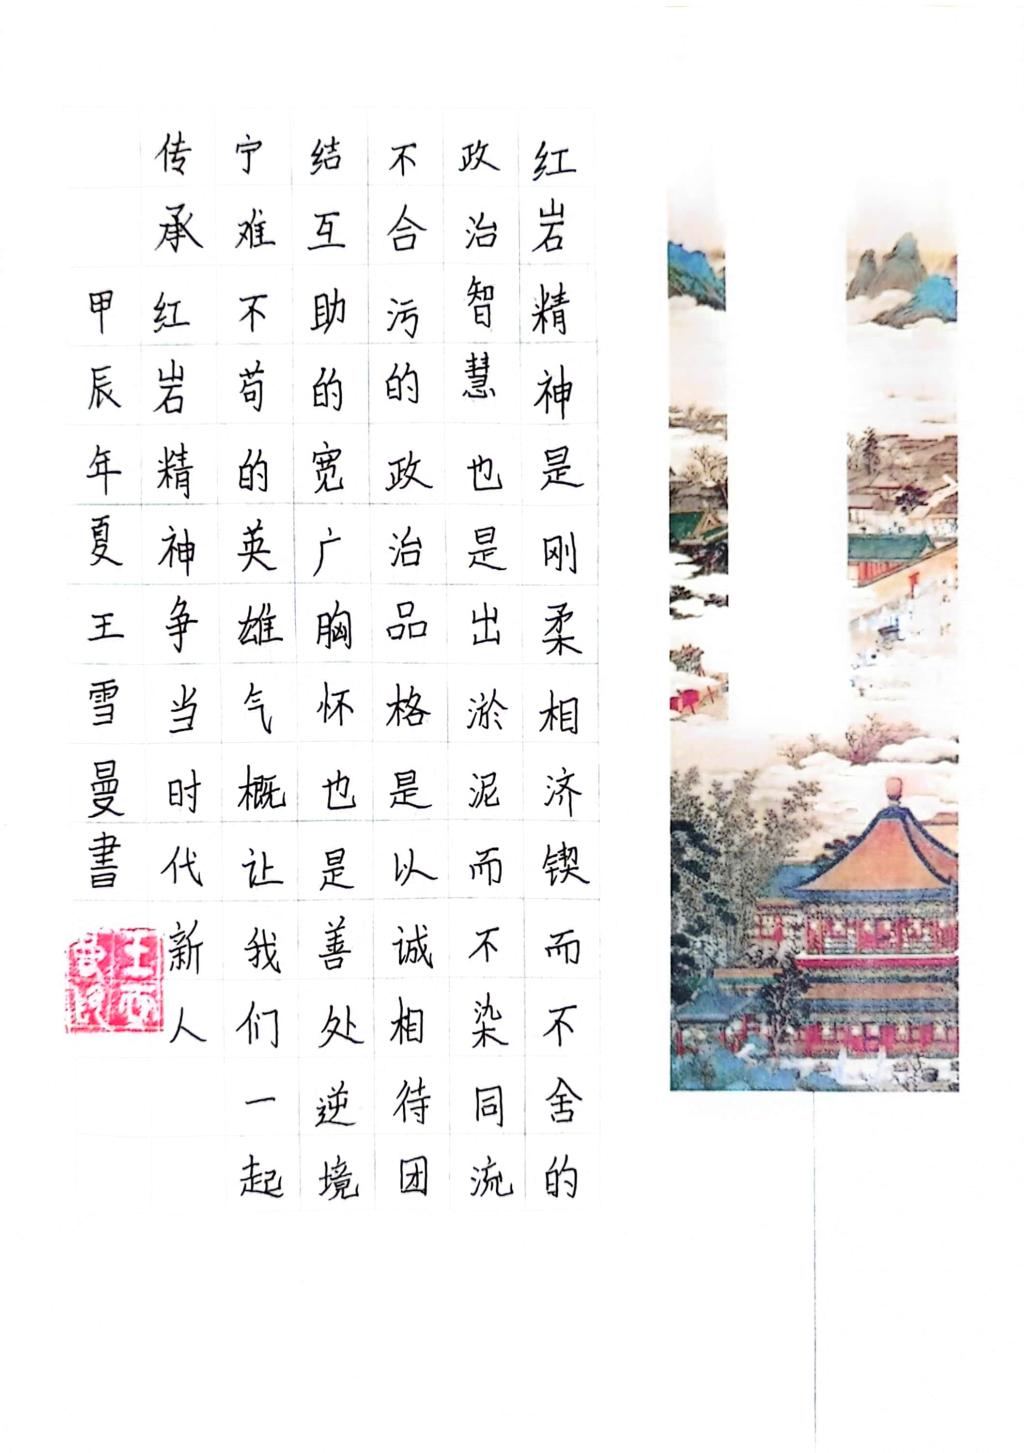 红岩精神是刚柔相济锲而不舍的
政治智慧也是出淤泥而不染同流
不合污的政治品格是以诚相待团
结互助的宽广胸怀也是善处逆境
宁难不苟的英雄气概让我们一起
传承红岩精神争当时代新人
甲辰年夏王雪曼書